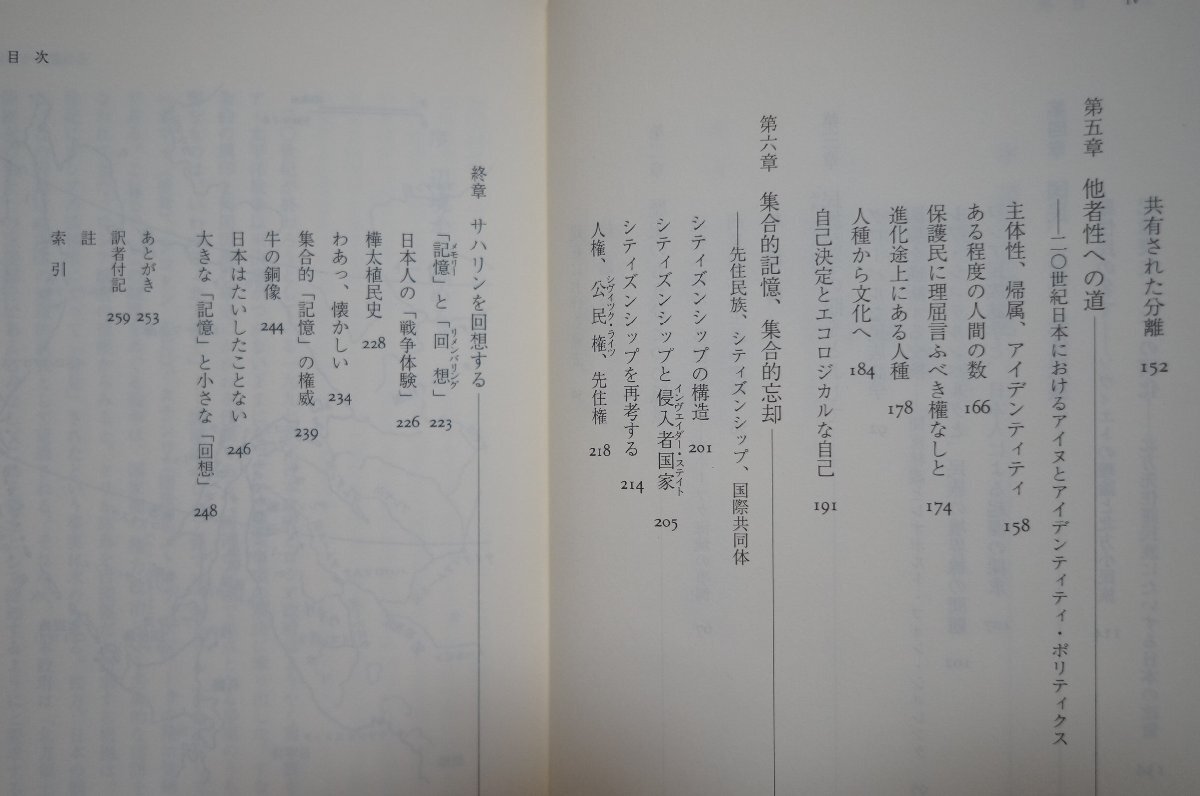 iv
共有された分離 152
第五章 他者性への道
――二〇世紀日本におけるアイヌとアイデンティティ・ポリティクス
主体性、帰属、アイデンティティ 158
ある程度の人間の数 166
保護民に理屈言ふべき權なしと 174
進化途上にある人種 178
人種から文化へ 184
自己決定とエコロジカルな自己 191
第六章 集合的記憶、集合的忘却
――先住民族、シティズンシップ、国際共同体
シティズンシップの構造 201
シティズンシップと侵入者国家 205
インヴェイダー・ステイト
シティズンシップを再考する 214
人権、公民権、先住権 218
シヴィック・ライツ
目次
終章 サハリンを回想する
「記憶」と「回想」 223
メモリー
リメンバリング
日本人の「戦争体験」 226
樺太植民史 228
わあっ、懐かしい 234
集合的「記憶」の権威 239
牛の銅像 244
日本はたいしたことない 246
大きな「記憶」と小さな「回想」 248
あとがき 253
訳者付記 259
註
索引